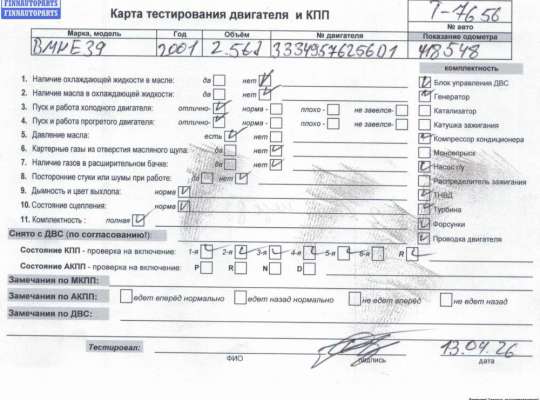 FINNAUTOPARTS
Карта тестирования двигателя и КПП
Т-7656
№ авто
Марка, модель Год Объём № двигателя Показание одометра
BMW E39 2001 2.5td 33349576256D1 418548
комплектность
1. Наличие охлаждающей жидкости в масле: да нет
Блок управления ДВС
2. Наличие масла в охлаждающей жидкости: да нет
Генератор
3. Пуск и работа холодного двигателя: отлично- норма - плохо - не завелся-
Катализатор
4. Пуск и работа прогретого двигателя: отлично- норма - плохо - не завелся-
Катушка зажигания
5. Давление масла: есть нет
Компрессор кондиционера
6. Картерные газы из отверстия масляного щупа: да нет
Моновпрыск
7. Наличие газов в расширительном бачке: да нет
Насос гу
8. Посторонние стуки или шумы при работе: да нет
Распределитель зажигания
9. Дымность и цвет выхлопа: норма
ТНВД
10. Состояние сцепления: норма
Турбина
11. Комплектность: полная
Форсунки
Снято с ДВС (по согласованию!):
Проводка двигателя
Состояние КПП - проверка на включение: 1-я 2-я 3-я 4-я 5-я 6-я R
Состояние АКПП - проверка на включение: P R N D
Замечания по МКПП:
Замечания по АКПП: едет вперёд нормально едет назад нормально не едет вперёд не едет назад
Замечания по ДВС:
Тестировал: 13.04.26
ФИО подпись дата